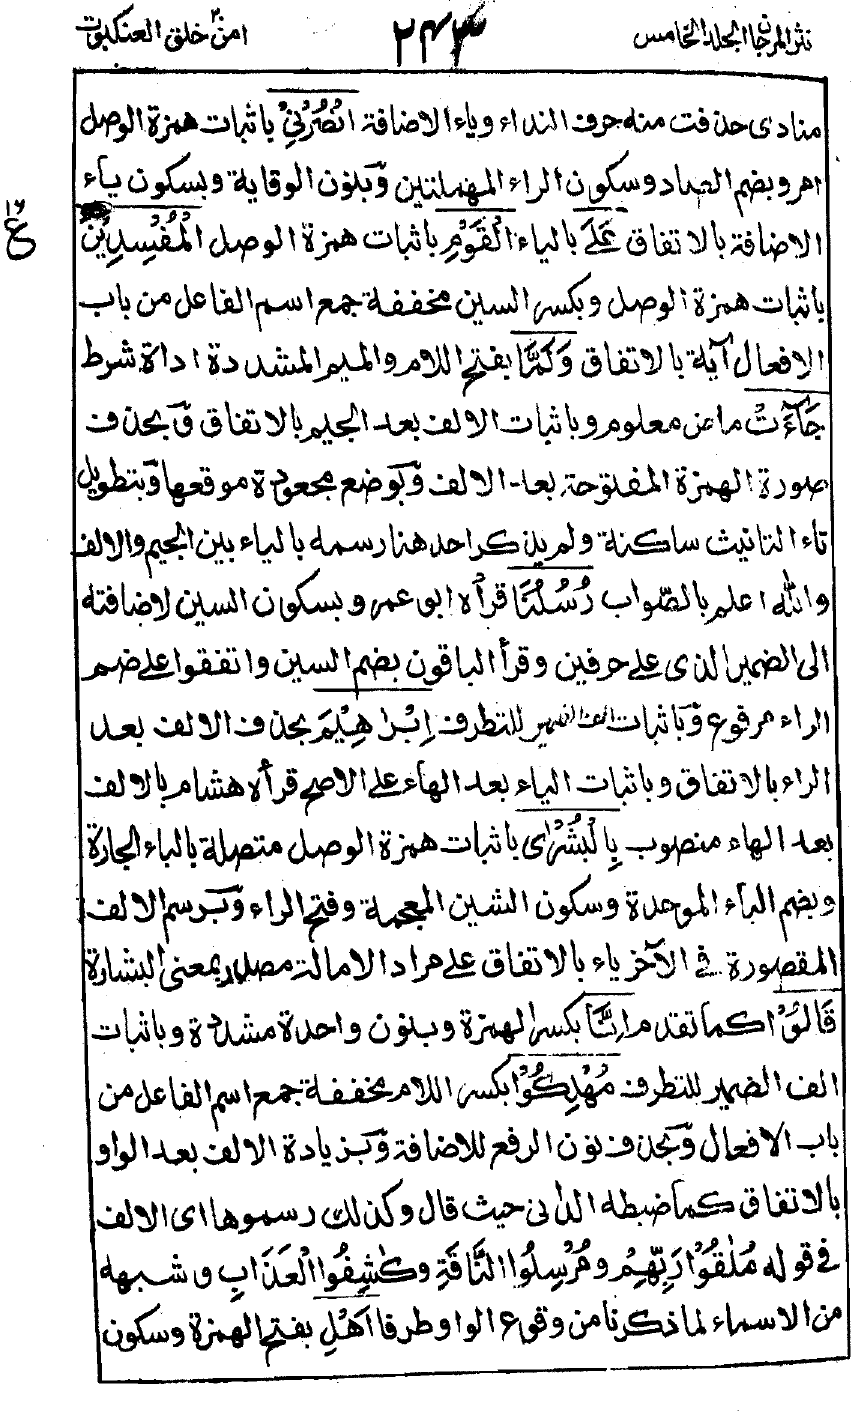 نثر المرجان الجلد الخامس
٢٤٣
امن خلق العنكبوت
منادى حذفت منه حرف النداء وياء الاضافة انْصُرْنِيْ باثبات همزة الوصل
امر وبضم الصاد وسكون الراء المهملتين وبنون الوقاية وبسكون ياء
الاضافة بالاتفاق عَلَى بالياء الْقَوْمِ باثبات همزة الوصل الْمُفْسِدِيْنَ
١٦
ع
باثبات همزة الوصل وبكسر السين مخففة جمع اسم الفاعل من باب
الافعال آية بالاتفاق وَلَمَّا بفتح اللام والميم المشددة اداة شرط
جَآءَتْ ماض معلوم وباثبات الالف بعد الجيم بالاتفاق وبحذف
صورة الهمزة المفتوحة بعد الالف وبوضع مجعودة موقعها وبتطويل
تاء التانيث ساكنة ولم يذكر احد هنا رسمه بالياء بين الجيم والالف
والله اعلم بالصّواب رُسُلُنَا قرأه ابو عمرو بسكون السين لاضافته
الى الضمير الذى على حرفين وقرأ الباقون بضم السين واتفقوا على ضم
الراء مرفوع وباثبات الف الضمير للتطرف اِبْرٰهِيْمَ بحذف الالف بعد
الراء بالاتفاق وباثبات الياء بعد الهاء على الاصح قرأه هشام بالالف
بعد الهاء منصوب بِالْبُشْرٰى باثبات همزة الوصل متصلة بالباء الجارة
وبضم الباء الموحدة وسكون الشين المعجمة وفتح الراء وبرسم الالف
المقصورة فى الآخر ياء بالاتفاق على مراد الامالة مصدر بمعنى البشارة
قَالُوْا كما تقدم اِنَّا بكسر الهمزة وبنون واحدة مشددة وباثبات
الف الضمير للتطرف مُهْلِكُوْا بكسر اللام مخففة جمع اسم الفاعل من
باب الافعال وبحذف نون الرفع للاضافة وبزيادة الالف بعد الواو
بالاتفاق كما ضبطه الدانى حيث قال وكذلك رسموها اى الالف
فى قوله مُلٰقُوْا رَبِّهِمْ ومُرْسِلُوا النَّاقَةِ وكٰشِفُوا الْعَذَابِ وشبهه
من الاسماء لما ذكرنا من وقوع الواو طرفا اَهْلِ بفتح الهمزة وسكون